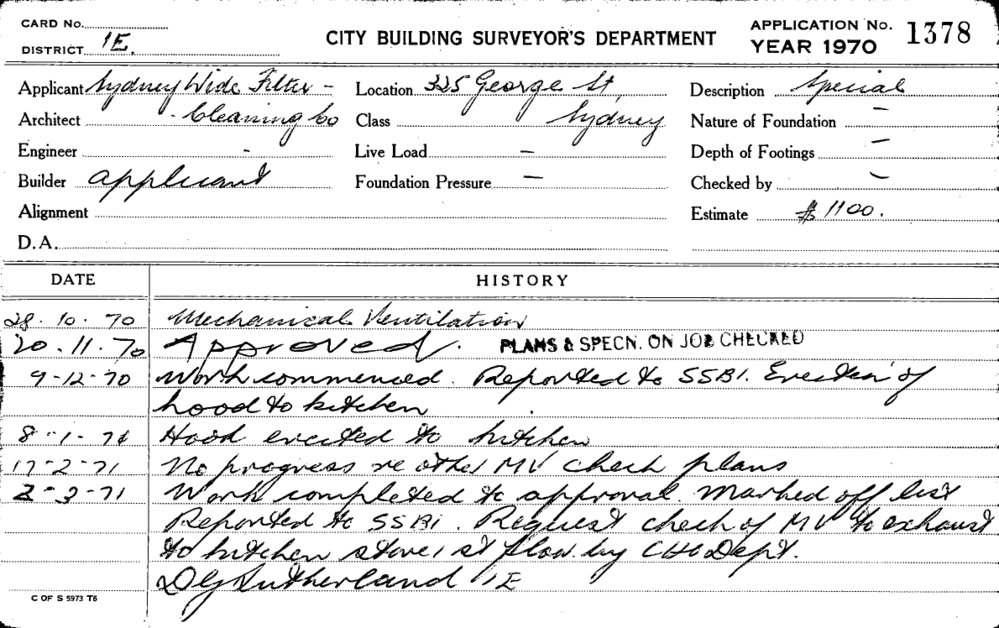 CARD No.
DISTRICT 1E.
CITY BUILDING SURVEYOR'S DEPARTMENT
APPLICATION No. 1378
YEAR 1970
Applicant Sydney Wide Filter -
Location 325 George St,
Description Special
Architect - Cleaning Co
Class Sydney
Nature of Foundation —
Engineer -
Live Load —
Depth of Footings —
Builder applicant
Foundation Pressure —
Checked by —
Alignment
Estimate $1100.
D.A.
DATE HISTORY
28.10.70 Mechanical Ventilation
20.11.70 Approved. PLANS & SPECN. ON JOB CHECKED
9-12-70 Work commenced. Reported to SSBI. Erection of
hood to kitchen
8-1-71 Hood erected to kitchen
17-2-71 No progress re other MV check plans
2-3-71 Work completed to approval. Marked off list
Reported to SSBI. Request check of MV to exhaust
to kitchen stove 1st floor by Dept.
DG Sutherland 1E
C OF S 5973 T6